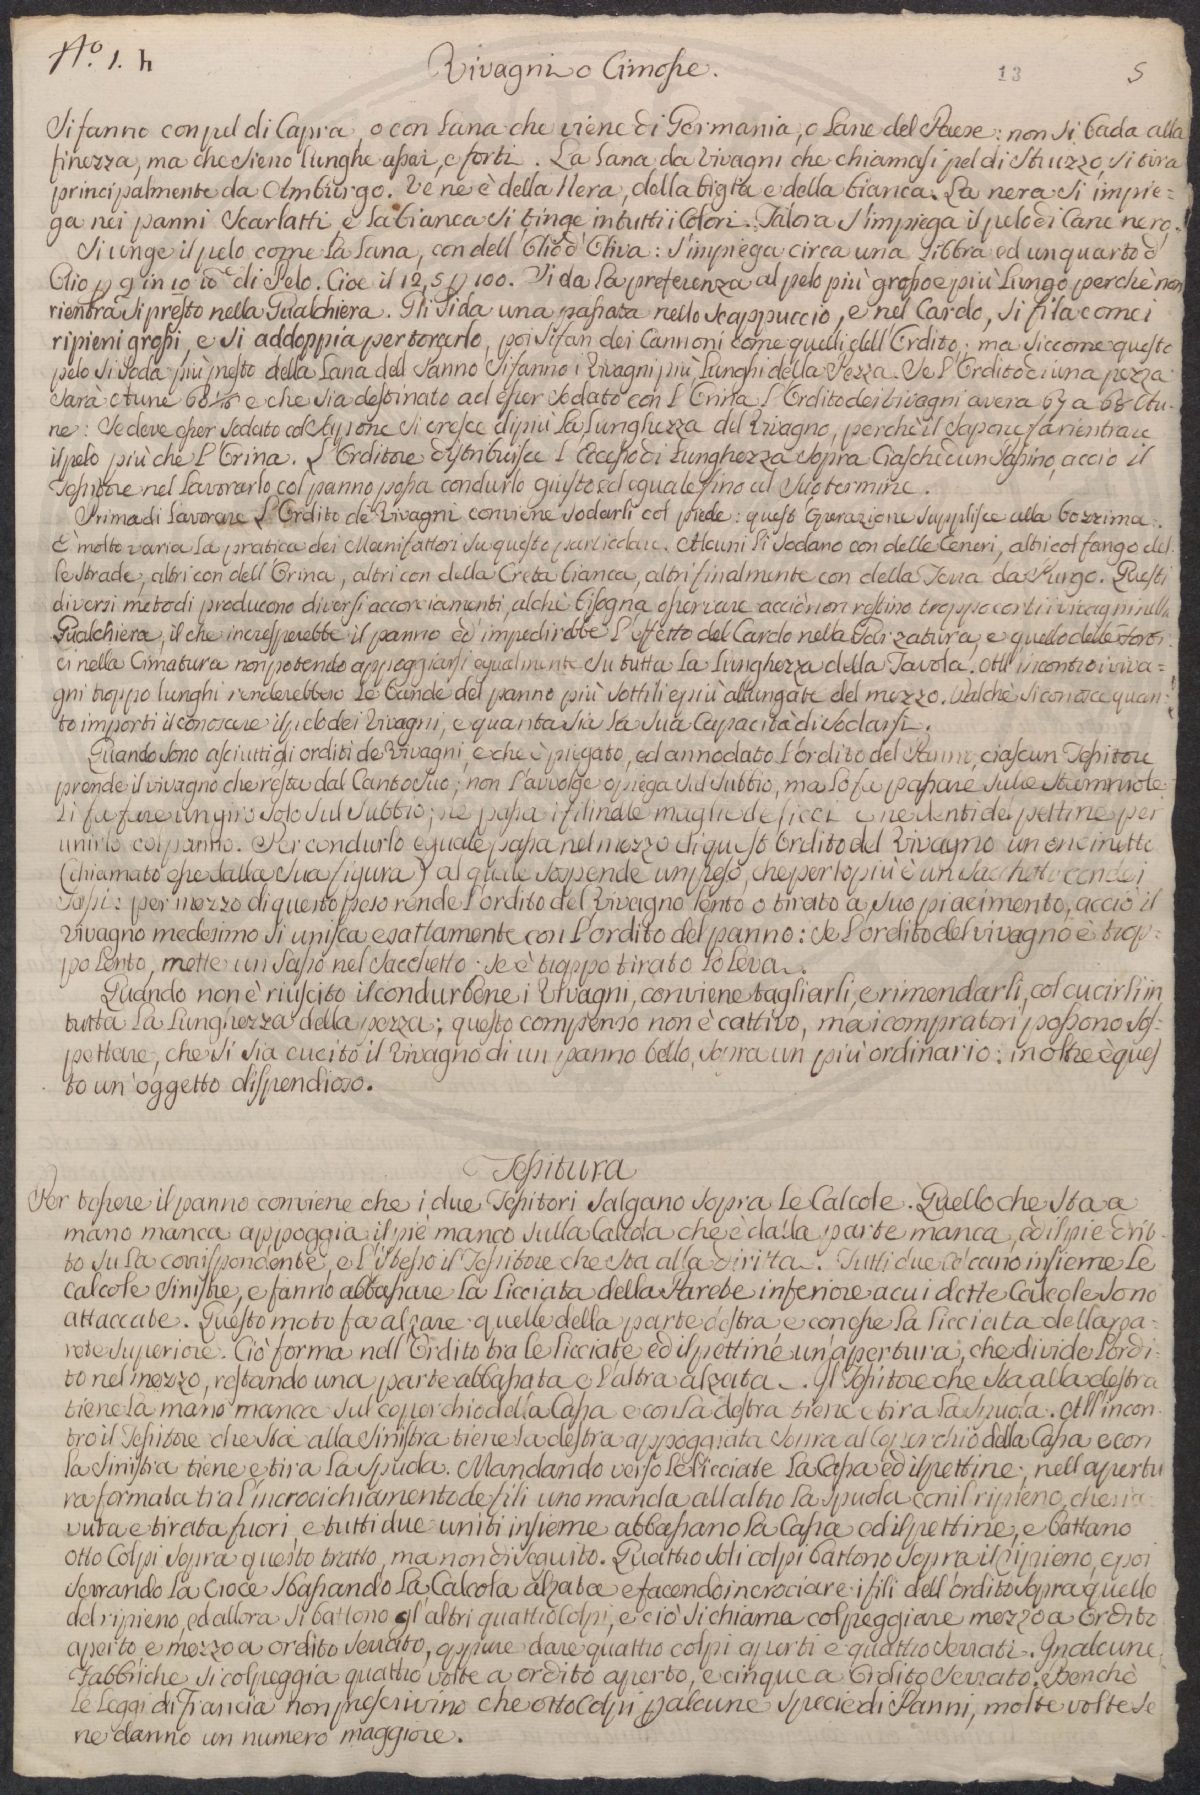 N.º 1. h
Rivagni o Cimosse.
13
5
Si fanno con pel di Capra, o con Lana che viene di Germania, o Lane del Paese: non si bada alla
finezza, ma che sieno lunghe assai, e forti. La Lana da Vivagni che chiamasi pel di Struzzo, si tira
principalmente da Amburgo. Ve ne è della Nera, della bigia e della bianca. La nera si impie=
ga nei panni Scarlatti e la bianca si tinge in tutti i Colori. Talora s'impiega il pelo di Cane nero.
Si unge il pelo come la Lana, con dell'Olio d'Oliva: s'impiega circa una Libbra ed un quarto d'
Olio p 9 in 10 di Pelo. Cioe il 12,5 p 100. Si da la preferenza al pelo più grosso e più Lungo perchè non
rientra si presto nella Gualchiera. Gli si da una passata nello Scappuccio, e nel Cardo, si fila come i
ripieni grossi, e si addoppia per torcerlo, poi si fan dei Cannoni come quelli dell'Ordito; ma siccome questo
pelo si soda più presto della Lana del Panno si fanno i Vivagni più Lunghi della Pezza. Se l'Ordito di una pezza
sarà Aune 68 e che sia destinato ad esser sodato con l'Orina l'Ordito dei Vivagni avera 67 a 68 Au=
ne: Se deve esser sodato col Sapone si cresce di più la Lunghezza del Vivagno, perchè il Sapone fa rientrare
il pelo più che l'Orina. L'Orditore distribuisce l'Eccesso di Lunghezza sopra Ciaschedun Passino, acciò il
Tessitore nel Lavorarlo col panno possa condurlo giusto ed eguale fino al suo termine.
Prima di Lavorare l'Ordito de Vivagni conviene sodarli col piede: quest'Operazione supplisce alla bozzima.
È molto varia la pratica dei Manifattori su questo particolare. Alcuni li sodano con delle Ceneri, altri col fango del=
le strade, altri con dell'Orina, altri con della Creta bianca, altri finalmente con della Terra da Purgo. Questi
diversi metodi producono diversi accorciamenti, al che bisogna osservare acciò non restino troppo corti i vivagni nella
Gualchiera, il che increspperebbe il panno ed impedirebbe l'effetto del Cardo nella Garzatura, e quello delle Forbi=
ci nella Cimatura non potendo appoggiarsi egualmente su tutta la Lunghezza della Tavola. All'incontro i viva=
gni troppo lunghi renderebbero le bande del panno più sottili e più allungate del mezzo. Dal chè si conosce quan=
to importi il conoscere il pelo dei Vivagni, e quanta sia la sua Capacità di Sodarsi.
Quando sono asciutti gli orditi de Vivagni, e che è piegato, ed annodato l'ordito del Panno, ciascun Tessitore
prende il vivagno che resta dal Canto suo; non l'avvolge o piega sul Subbio, ma lo fa passare sulle
Li fa fare un giro solo sul subbio; ne passa i fili nelle maglie de licci e ne denti del pettine per
unirlo col panno. Per condurlo eguale passa nel mezzo di quest'Ordito del Vivagno un oncinetto
(chiamato esse dalla sua figura) al quale sospende un peso, che per lo più è un sacchetto con dei
Sassi: per mezzo di questo peso rende l'ordito del Vivagno lento o tirato a suo piacimento, acciò il
Vivagno medesimo si unisca esattamente con l'ordito del panno: se l'ordito del vivagno è trop=
po lento, mette un sasso nel sacchetto. Se è troppo tirato lo leva.
Quando non è riuscito il condur bene i Vivagni, conviene tagliarli, e rimendarli, col cucirli in
tutta la Lunghezza della pezza; questo compenso non è cattivo, ma i compratori possono sos=
pettare, che si sia cucito il Vivagno di un panno bello, sopra un più ordinario: inoltre è ques
to un'oggetto dispendioso.
Tessitura
Per tessere il panno conviene che i due Tessitori salgano sopra le Calcole. Quello che sta a
mano manca appoggia il piè manco sulla Calcola che è dalla parte manca, ed il piè drit=
to su la corrispondente, e l'istesso il Tessitore che sta alla diritta. Tutti due calcano insieme le
calcole sinistre, e fanno abbassare la licciata della Parete inferiore a cui dette Calcole sono
attaccate. Questo moto fa alzare quelle della parte destra e con esse la licciata della pa=
rete superiore. Ciò forma nell'Ordito tra le licciate ed il pettine un'apertura, che divide l'ordi=
to nel mezzo, restando una parte abbassata e l'altra alzata. Il Tessitore che sta alla destra
tiene la mano manca sul coperchio della Cassa e con la destra tiene e tira la Spuola. All'incon=
tro il Tessitore che sta alla sinistra tiene la destra appoggiata sopra al Coperchio della Cassa e con
la sinistra tiene e tira la Spuola. Mandando verso le licciate la Cassa ed il pettine, nell'apertu
ra formata tra l'incrocicchiamento de fili uno manda all'altro la Spuola con il ripieno, che
vuta e tirata fuori, e tutti due uniti insieme abbassano la Cassa ed il pettine, e battano
otto Colpi sopra questo tratto, ma non di seguito. Quattro soli colpi battono sopra il ripieno, e poi
serrando la croce sbassando la Calcola alzata e facendo incrociare i fili dell'ordito sopra quello
del ripieno, ed allora si battono gl'altri quattro Colpi, e ciò si chiama colpeggiare mezzo a Ordito
aperto e mezzo a ordito serrato, oppure dare quattro colpi aperti e quattro serrati. In alcune
Fabbriche si colpeggia quattro volte a ordito aperto, e cinque a Ordito serrato. E benchè
le Leggi di Francia non prescrivino che otto Colpi p alcune specie di Panni, molte volte se
ne danno un numero maggiore.